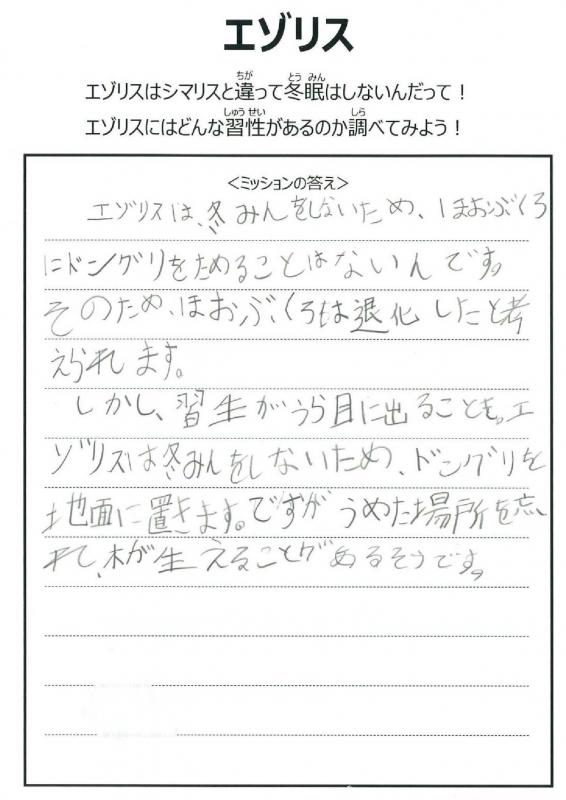 エゾリス
エゾリスはシマリスと違って冬眠はしないんだって！
エゾリスにはどんな習性があるのか調べてみよう！
＜ミッションの答え＞
エゾリスは、冬みんをしないため、ほおぶくろ
にドングリをためることはないんです。
そのため、ほおぶくろは退化したと考
えられます。
しかし、習生がうら目に出ることも。エ
ゾリスは冬みんをしないため、ドングリを
地面に置きます。ですが うめた場所を忘
れ、木が生えることがあるそうです。